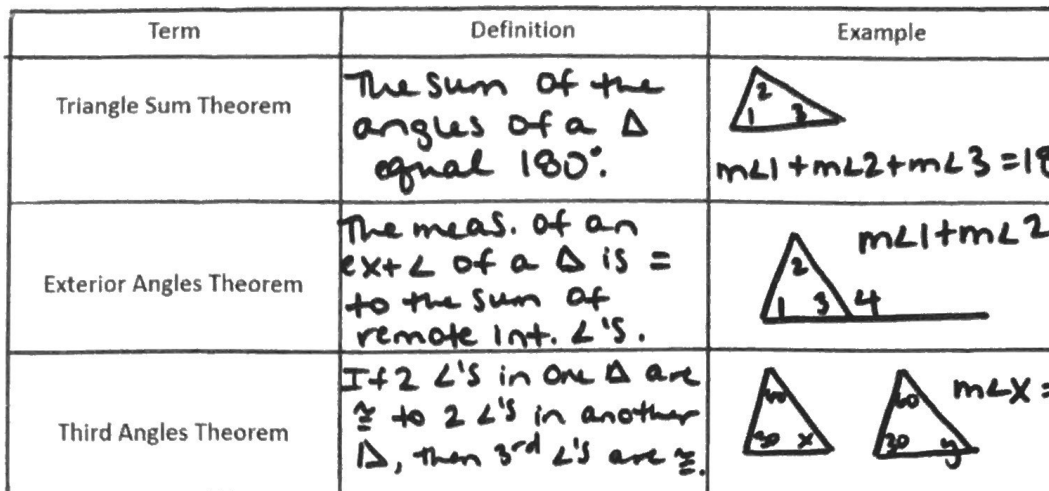 Term Definition Example
Triangle Sum Theorem
The sum of the
angles of a Δ
equal 180°.
2
1 3
m∠1+m∠2+m∠3=18
Exterior Angles Theorem
The meas. of an
ext ∠ of a Δ is =
to the sum of
remote int. ∠'s.
m∠1+m∠2
2
1 3 4
Third Angles Theorem
If 2 ∠'s in one Δ are
≅ to 2 ∠'s in another
Δ, then 3rd ∠'s are ≅.
30 x
60
30 y
m∠x=